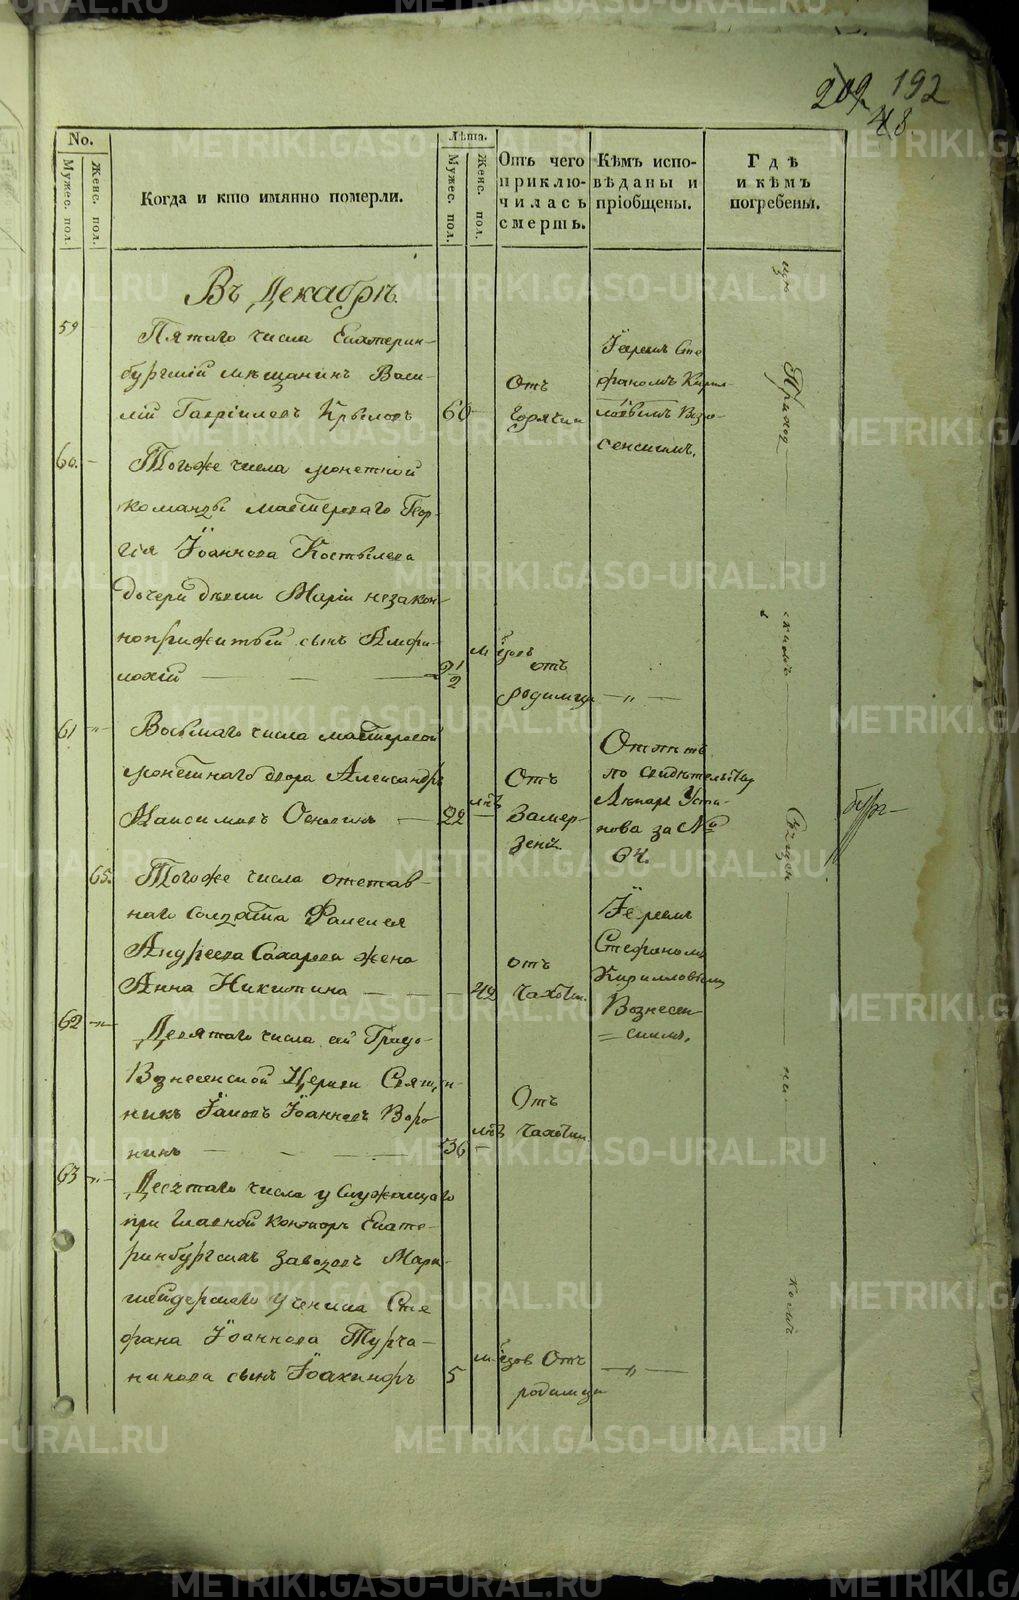 209 192
48
No.
Мужес. пол.
Женс. пол.
Когда и кто имянно померли.
Лѣта.
Мужес. пол.
Женс. пол.
Отъ чего приклю- чилась смерть.
Кѣмъ испо- вѣданы и пріобщены.
Гдѣ и кѣмъ погребены.
Въ Декабрѣ.
59
Пятаго числа Екатерин-
бургскій мѣщанинъ Васи-
лій Гавріиловъ Крыловъ
60
Отъ
горячки
Іереемъ Сте
фаномъ Кирил-
ловымъ Возне-
сенскимъ.
60. -
Тогоже числа монетной
команды мастероваго Геор-
гія Іоаннова Костылева
дочери дѣвки Маріи незакон-
ноприжитый сынъ Амфи-
лохій
2 1/2
отъ
родимца
— „ —
61 - „ -
Восьмаго числа мастеровой
монетнаго двора Александръ
Максимовъ
22
лѣтъ
Отъ
Замер-
зенія
по свидѣтельству
Лѣкаря Усти-
нова за №
64.
65.
Тогоже числа отстав-
наго солдата
Андреева Сахарова жена
Анна Никитина
42
отъ
чахотки.
Іереемъ
Стефаномъ
Кирилловымъ
Вознесен-
= скимъ.
62 - „ -
Девятаго числа сей Градо-
Вознесенской Церкви Свящ,н-
никъ Іаковъ Іоанновъ Воро
нинъ
36
лѣтъ
Отъ
чахотки.
63 - „ -
Десятаго числа у Служащаго
при Главной Конторѣ Екате-
ринбургскихъ заводовъ Марк-
шейдерскаго ученика Сте
фана Іоаннова Турча-
нинова сынъ Іоакинфъ
5
Отъ
родимца
— „ —
на
Приход
скомъ
бург-
METRIKI.GASO-URAL.RU